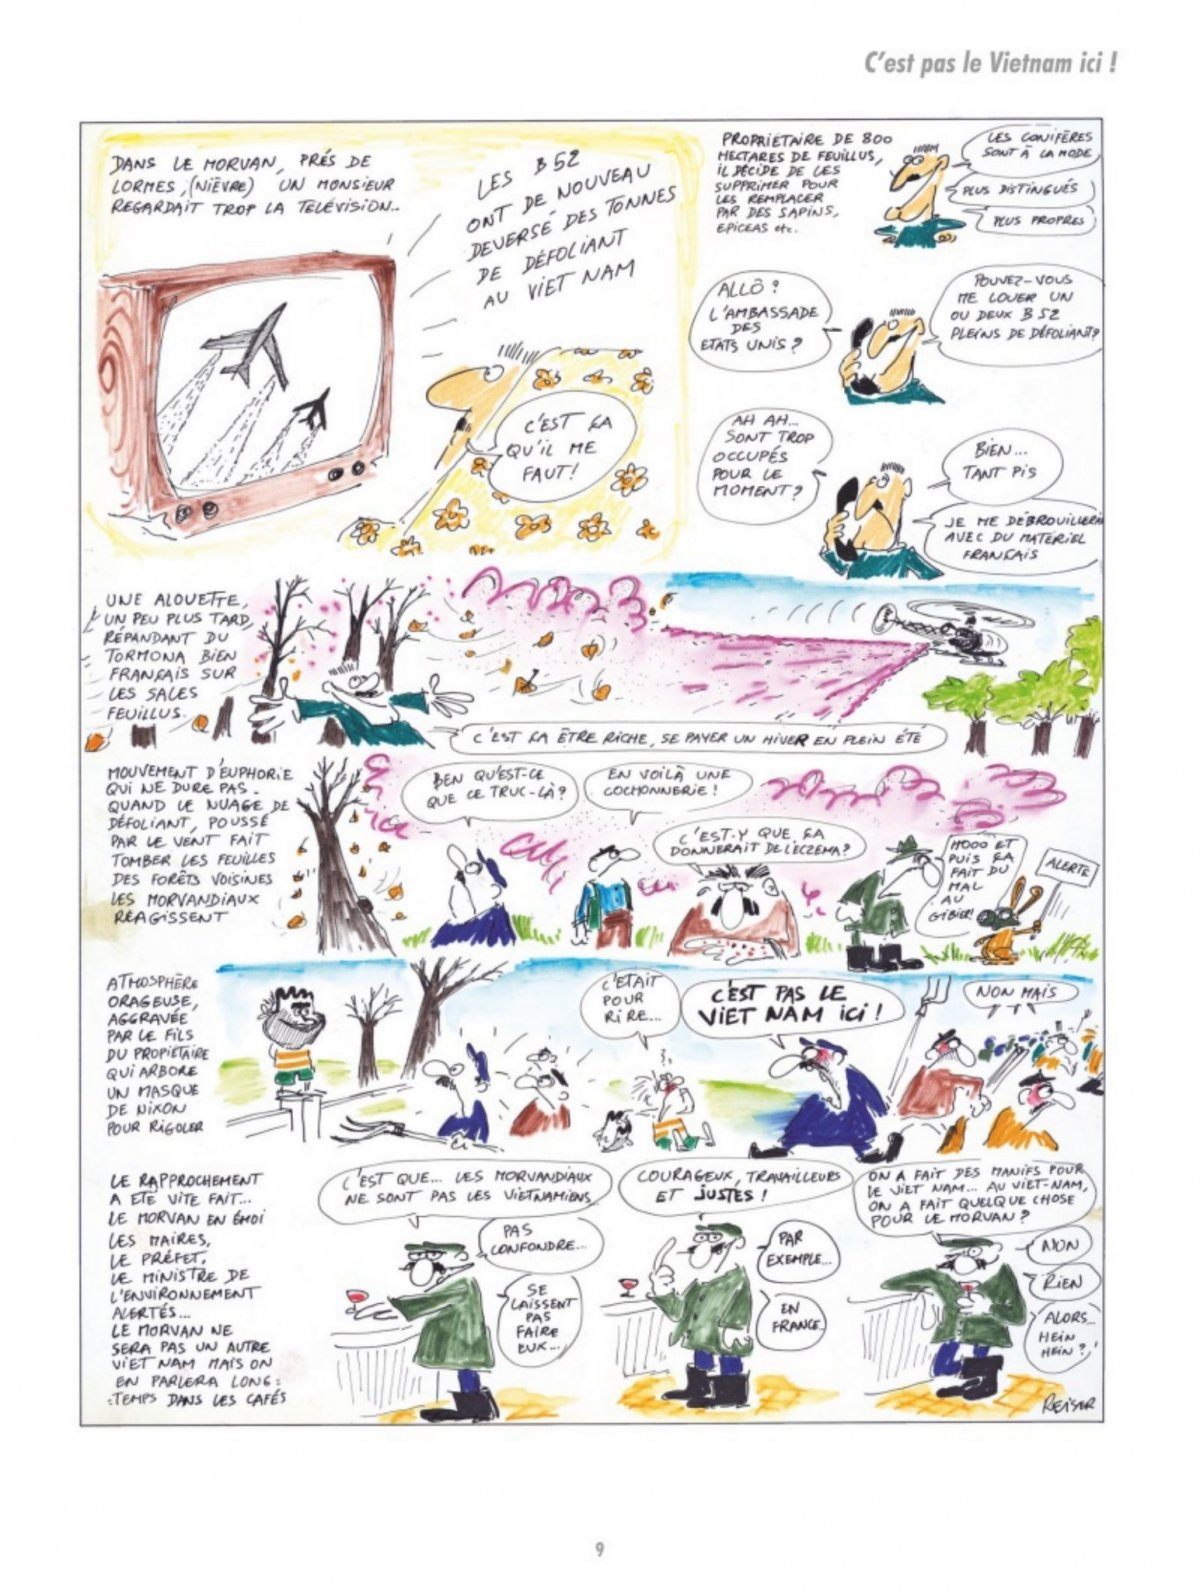 C'est pas le Vietnam ici !
DANS LE MORVAN, PRÉS DE
LORMES, (NIÈVRE) UN MONSIEUR
REGARDAIT TROP LA TELÉVISION..
LES B 52
ONT DE NOUVEAU
DEVERSÉ DES TONNES
DE DÉFOLIANT
AU VIET NAM
C'EST ÇA
QU'IL ME
FAUT!
PROPRIÉTAIRE DE 800
HECTARES DE FEUILLUS,
IL DÉCIDE DE LES
SUPPRIMER POUR
LES REMPLACER
PAR DES SAPINS,
EPICEAS etc.
LES CONIFÈRES
SONT À LA MODE
PLUS DISTINGUÉS
PLUS PROPRES
ALLÔ ?
L'AMBASSADE
DES
ETATS UNIS ?
POUVEZ-VOUS
ME LOUER UN
OU DEUX B 52
PLEINS DE DÉFOLIANT?
AH AH...
SONT TROP
OCCUPÉS
POUR LE
MOMENT ?
BIEN...
TANT PIS
JE ME DÉBROUILLERAI
AVEC DU MATÉRIEL
FRANÇAIS
UNE ALOUETTE,
UN PEU PLUS TARD,
RÉPANDANT DU
TORMONA BIEN
FRANÇAIS SUR
LES SALES
FEUILLUS.
C'EST ÇA ÊTRE RICHE, SE PAYER UN HIVER EN PLEIN ÉTÉ
MOUVEMENT D'EUPHORIE
QUI NE DURE PAS.
QUAND LE NUAGE DE
DÉFOLIANT, POUSSÉ
PAR LE VENT FAIT
TOMBER LES FEUILLES
DES FORÊTS VOISINES
LES MORVANDIAUX
RÉAGISSENT
BEN QU'EST-CE
QUE CE TRUC-LÀ ?
EN VOILÀ UNE
COCHONNERIE !
C'EST-Y QUE ÇA
DONNERAIT DE L'ECZEMA ?
HOOO ET
PUIS ÇA
FAIT DU
MAL
AU
GIBIER!
ALERTE
ATMOSPHÈRE
ORAGEUSE,
AGGRAVÉE
PAR LE FILS
DU PROPIÉTAIRE
QUI ARBORE
UN MASQUE
DE NIXON
POUR RIGOLER
C'ETAIT
POUR
RIRE...
C'EST PAS LE
VIET NAM ICI !
NON MAIS
LE RAPPROCHEMENT
A ETÉ VITE FAIT...
LE MORVAN EN ÉMOI
LES MAIRES,
LE PRÉFET,
LE MINISTRE DE
L'ENVIRONNEMENT
ALERTÉS...
LE MORVAN NE
SERA PAS UN AUTRE
VIET NAM MAIS ON
EN PARLERA LONG:
:TEMPS DANS LES CAFÉS
C'EST QUE... LES MORVANDIAUX
NE SONT PAS LES VIETNAMIENS
PAS
CONFONDRE...
SE
LAISSENT
PAS
FAIRE
EUX...
COURAGEUX, TRAVAILLEURS
ET JUSTES !
PAR
EXEMPLE...
EN
FRANCE..
ON A FAIT DES MANIFS POUR
LE VIET NAM... AU VIET-NAM,
ON A FAIT QUELQUE CHOSE
POUR LE MORVAN ?
NON
RIEN
ALORS...
HEIN
HEIN ?!
REISER
9